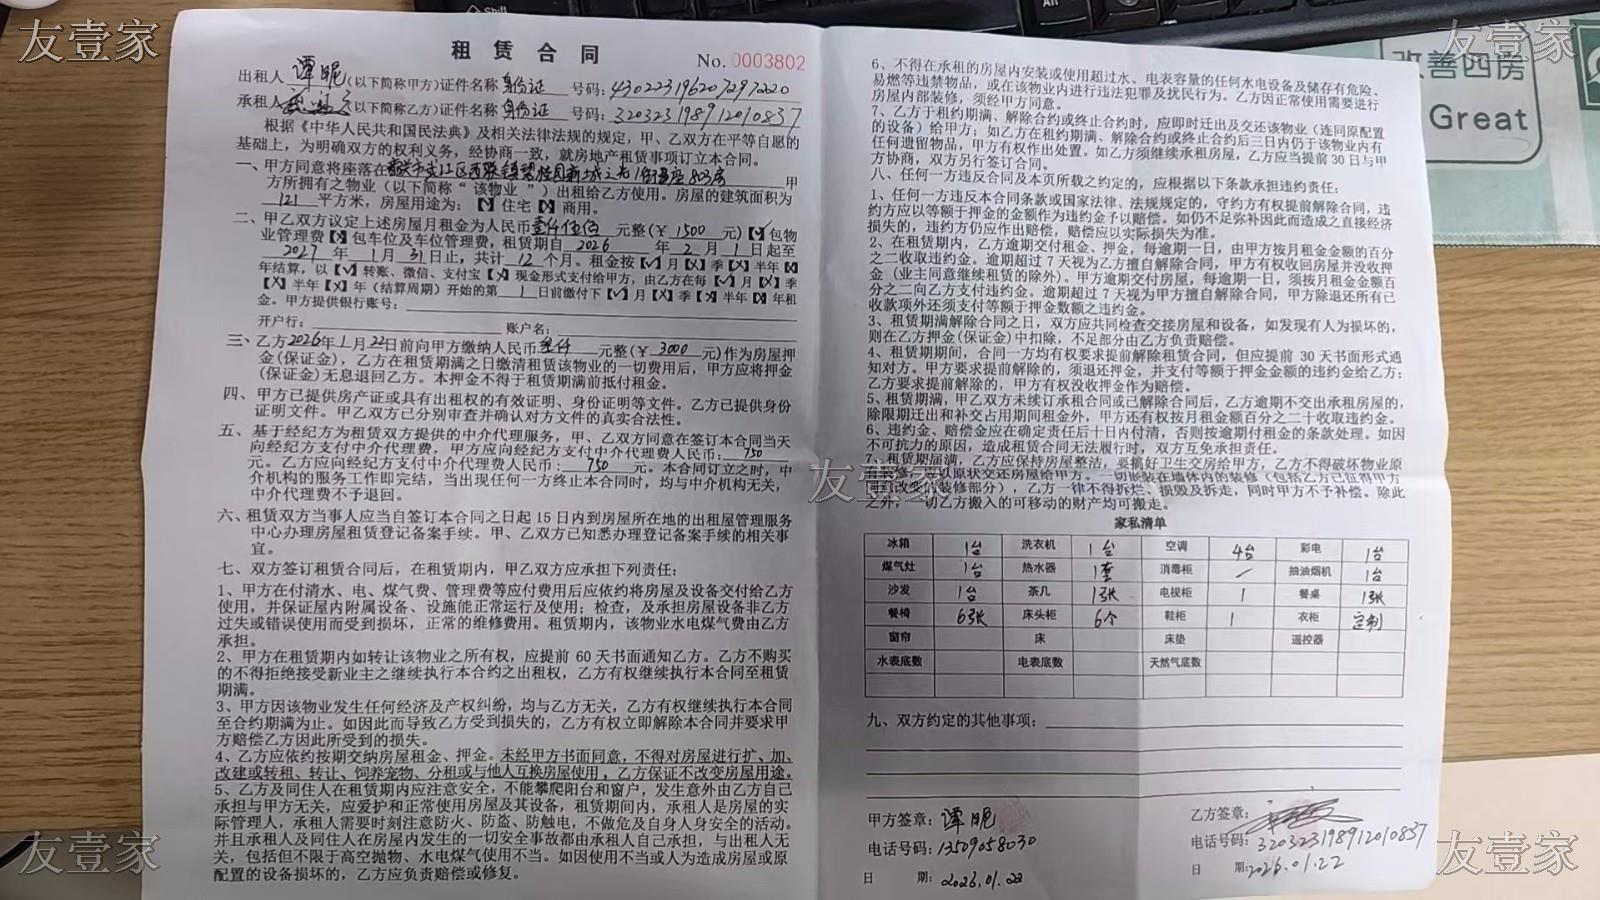 友壹家
友壹家
Shift
Alt
改善四房
Great
租 赁 合 同
No. 0003802
出租人 谭昵 (以下简称甲方)证件名称 身份证 号码: 430223196207297220
承租人 (以下简称乙方)证件名称 身份证 号码: 320323198912010837
根据《中华人民共和国民法典》及相关法律法规的规定，甲、乙双方在平等自愿的
基础上，为明确双方的权利义务，经协商一致，就房地产租赁事项订立本合同。
一、甲方同意将座落在 市 江区西联镇碧桂园新城之光1街 座803房 甲
方所拥有之物业（以下简称“该物业”）出租给乙方使用。房屋的建筑面积为
121 平方米，房屋用途为：【✓】住宅【X】商用。
二、甲乙双方议定上述房屋月租金为人民币 壹仟伍佰 元整(￥ 1500 元)【✓】包物
业管理费【X】包车位及车位管理费，租赁期自 2026 年 2 月 1 日起至
2027 年 1 月 31 日止，共计 12 个月。租金按【✓】月【X】季【X】半年【X】
年结算，以【✓】转账、微信、支付宝【X】现金形式支付给甲方，由乙方在每【✓】月【X】季
【X】半年【X】年（结算周期）开始的第 1 日前缴付下【✓】月【X】季【X】半年【X】年租
金。甲方提供银行账号：
开户行： 账户名：
三、乙方 2026 年 1 月 22 日前向甲方缴纳人民币 叁仟 元整(￥ 3000 元)作为房屋押
金(保证金)，乙方在租赁期满之日缴清租赁该物业的一切费用后，甲方应将押金
(保证金)无息退回乙方。本押金不得于租赁期满前抵付租金。
四、甲方已提供房产证或具有出租权的有效证明、身份证明等文件。乙方已提供身份
证明文件。甲乙双方已分别审查并确认对方文件的真实合法性。
五、基于经纪方为租赁双方提供的中介代理服务，甲、乙双方同意在签订本合同当天
向经纪方支付中介代理费，甲方应向经纪方支付中介代理费人民币： 750
元。乙方应向经纪方支付中介代理费人民币： 750 元。本合同订立之时，中
介机构的服务工作即完结，当出现任何一方终止本合同时，均与中介机构无关，
中介代理费不予退回。
六、租赁双方当事人应当自签订本合同之日起 15 日内到房屋所在地的出租屋管理服务
中心办理房屋租赁登记备案手续。甲、乙双方已知悉办理登记备案手续的相关事
宜。
七、双方签订租赁合同后，在租赁期内，甲乙双方应承担下列责任：
1、甲方在付清水、电、煤气费、管理费等应付费用后应依约将房屋及设备交付给乙方
使用，并保证屋内附属设备、设施能正常运行及使用；检查，及承担房屋设备非乙方
过失或错误使用而受到损坏，正常的维修费用。租赁期内，该物业水电煤气费由乙方
承担。
2、甲方在租赁期内如转让该物业之所有权，应提前 60 天书面通知乙方。乙方不购买
的不得拒绝接受新业主之继续执行本合约之出租权，乙方有权继续执行本合同至租赁
期满。
3、甲方因该物业发生任何经济及产权纠纷，均与乙方无关，乙方有权继续执行本合同
至合约期满为止。如因此而导致乙方受到损失的，乙方有权立即解除本合同并要求甲
方赔偿乙方因此所受到的损失。
4、乙方应依约按期交纳房屋租金、押金。未经甲方书面同意，不得对房屋进行扩、加、
改建或转租、转让、饲养宠物、分租或与他人互换房屋使用，乙方保证不改变房屋用途。
5、乙方及同住人在租赁期内应注意安全，不能攀爬阳台和窗户，发生意外由乙方自己
承担与甲方无关，应爱护和正常使用房屋及其设备，租赁期间内，承租人是房屋的实
际管理人，承租人需要时刻注意防火、防盗、防触电，不做危及自身人身安全的活动。
并且承租人及同住人在房屋内发生的一切安全事故都由承租人自己承担，与出租人无
关，包括但不限于高空抛物、水电煤气使用不当。如因使用不当或人为造成房屋或原
配置的设备损坏的，乙方应负责赔偿或修复。
6、不得在承租的房屋内安装或使用超过水、电表容量的任何水电设备及储存有危险、
易燃等违禁物品，或在该物业内进行违法犯罪及扰民行为。乙方因正常使用需要进行
房屋内部装修，须经甲方同意。
7、乙方于租约期满、解除合约或终止合约时，应即时迁出及交还该物业（连同原配置
的设备）给甲方；如乙方在租约期满、解除合约或终止合约后三日内仍于该物业内有
任何遗留物品，甲方有权作出处置。如乙方须继续承租房屋，乙方应当提前 30 日与甲
方协商，双方另行签订合同。
八、任何一方违反合同及本页所载之约定的，应根据以下条款承担违约责任：
1、任何一方违反本合同条款或国家法律、法规规定的，守约方有权提前解除合同，违
约方应以等额于押金的金额作为违约金予以赔偿。如仍不足弥补因此而造成之直接经济
损失的，违约方仍应作出赔偿，赔偿应以实际损失为准。
2、在租赁期内，乙方逾期交付租金、押金，每逾期一日，由甲方按月租金金额的百分
之二收取违约金。逾期超过 7 天视为乙方擅自解除合同，甲方有权收回房屋并没收押
金（业主同意继续租赁的除外)。甲方逾期交付房屋，每逾期一日，须按月租金金额百
分之二向乙方支付违约金。逾期超过 7 天视为甲方擅自解除合同，甲方除退还所有已
收款项外还须支付等额于押金数额之违约金。
3、租赁期满解除合同之日，双方应共同检查交接房屋和设备，如发现有人为损坏的，
则在乙方押金(保证金)中扣除，不足部分由乙方负责赔偿。
4、租赁期期间，合同一方均有权要求提前解除租赁合同，但应提前 30 天书面形式通
知对方。甲方要求提前解除的，须退还押金，并支付等额于押金金额的违约金给乙方；
乙方要求提前解除的，甲方有权没收押金作为赔偿。
5、租赁期满，甲乙双方未续订承租合同或已解除合同后，乙方逾期不交出承租房屋的，
除限期迁出和补交占用期间租金外，甲方还有权按月租金额百分之二十收取违约金。
6、违约金、赔偿金应在确定责任后十日内付清，否则按逾期付租金的条款处理。如因
不可抗力的原因，造成租赁合同无法履行时，双方互免承担责任。
7、租赁期届满，乙方应保持房屋整洁，要搞好卫生交房给甲方，乙方不得破坏物业原
以原状交还房屋给甲方。一切嵌装在墙体内的装修（包括乙方已征得甲方
改变的装修部分），乙方一律不得拆烂、损毁及拆走，同时甲方不予补偿。除此
之外，一切乙方搬入的可移动的财产均可搬走。
友壹家
家私清单
冰箱 1台 洗衣机 1台 空调 4台 彩电 1台
煤气灶 1台 热水器 1套 消毒柜 / 抽油烟机 1台
沙发 1台 茶几 1张 电视柜 1 餐桌 1张
餐椅 6张 床头柜 6个 鞋柜 1 衣柜 定制
窗帘 床 床垫 遥控器
水表底数 电表底数 天然气底数
九、双方约定的其他事项：
甲方签章: 谭昵
电话号码: 13509058030
日 期: 2026.01.22
乙方签章:
电话号码: 320323198912010837
日 期: 2026.01.22
友壹家
友壹家